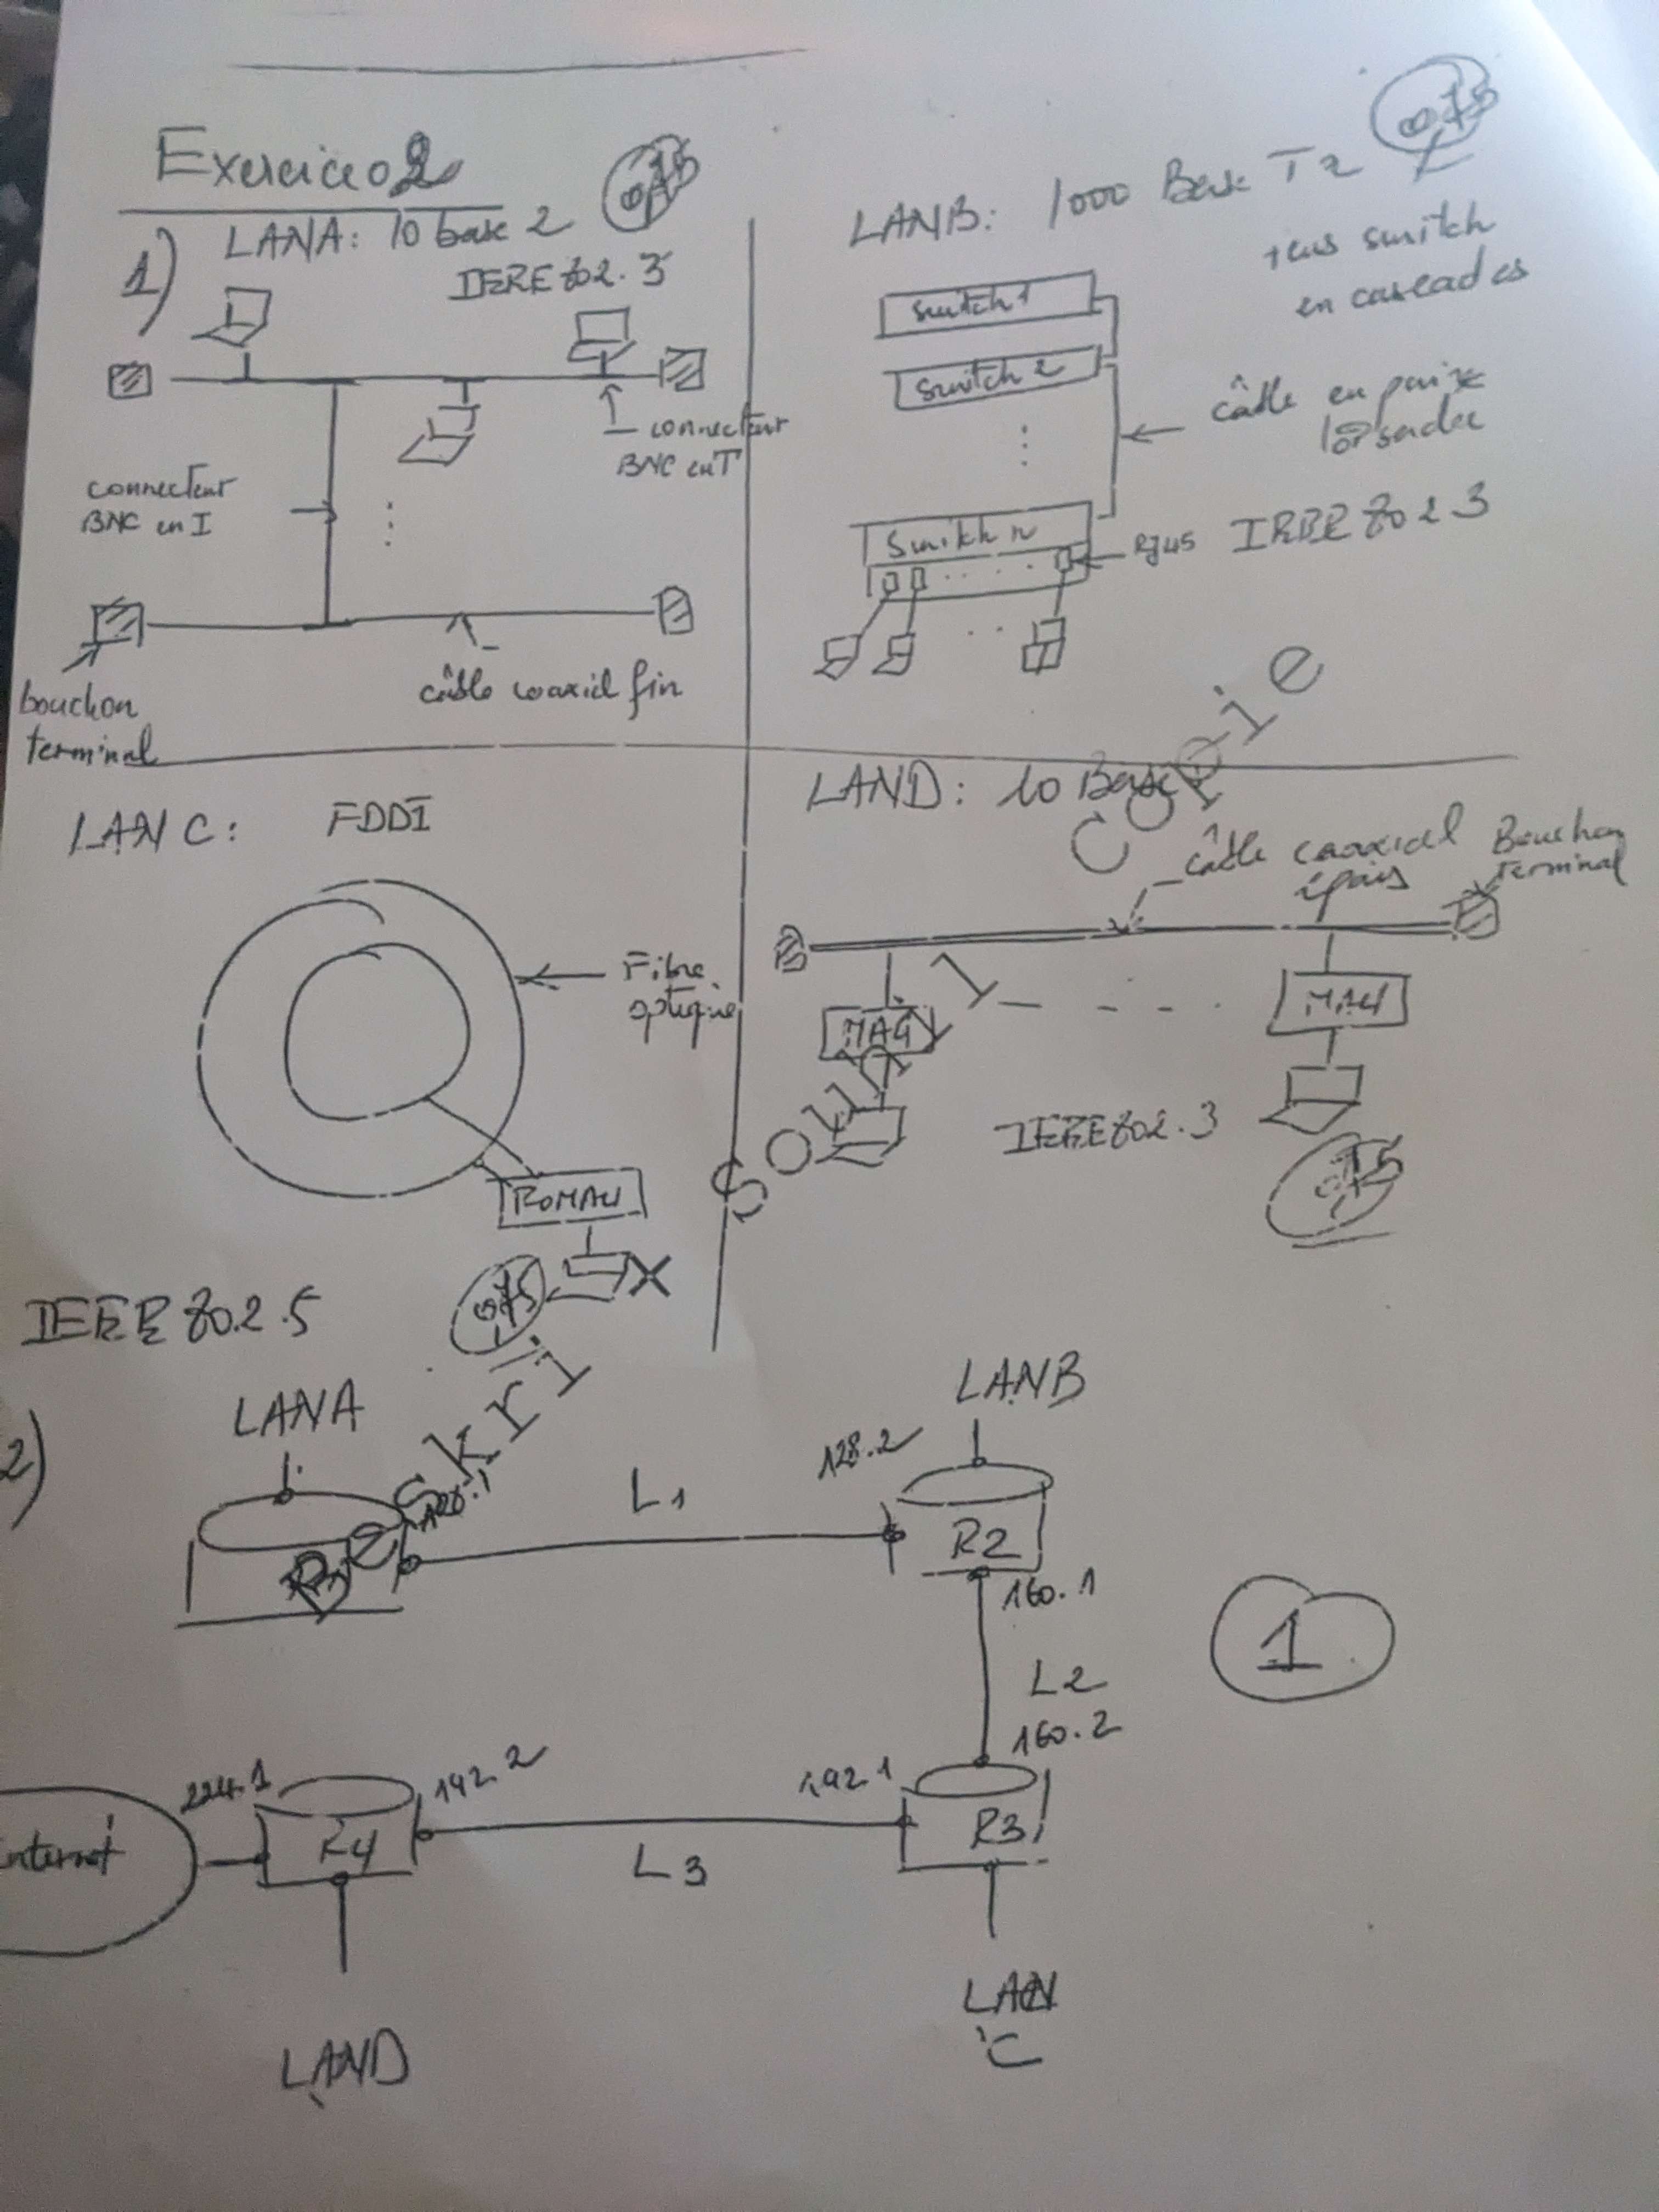 Exercice 02
0,75
1) LANA: 10 base 2
IEEE 802.3
connecteur
BNC en T
connecteur
BNC en I
câble coaxial fin
bouchon
terminal
LANB: 1000 Base T2
0,75
switch
en cascades
switch 1
switch 2
câble en paire
torsadée
Switch n
RJ45
IEEE 802.3
LAN C: FDDI
Fibre
optique
0,75
IEEE 802.5
LAND: 10 Base
câble coaxial
épais
Bouchon
terminal
MAU
MAU
IEEE 802.3
0,75
Copie
2)
LANA
L1
128.2
LANB
R2
160.1
L2
160.2
1
224.1
internet
R4
L3
192.1
R3
LAND
LAN
C